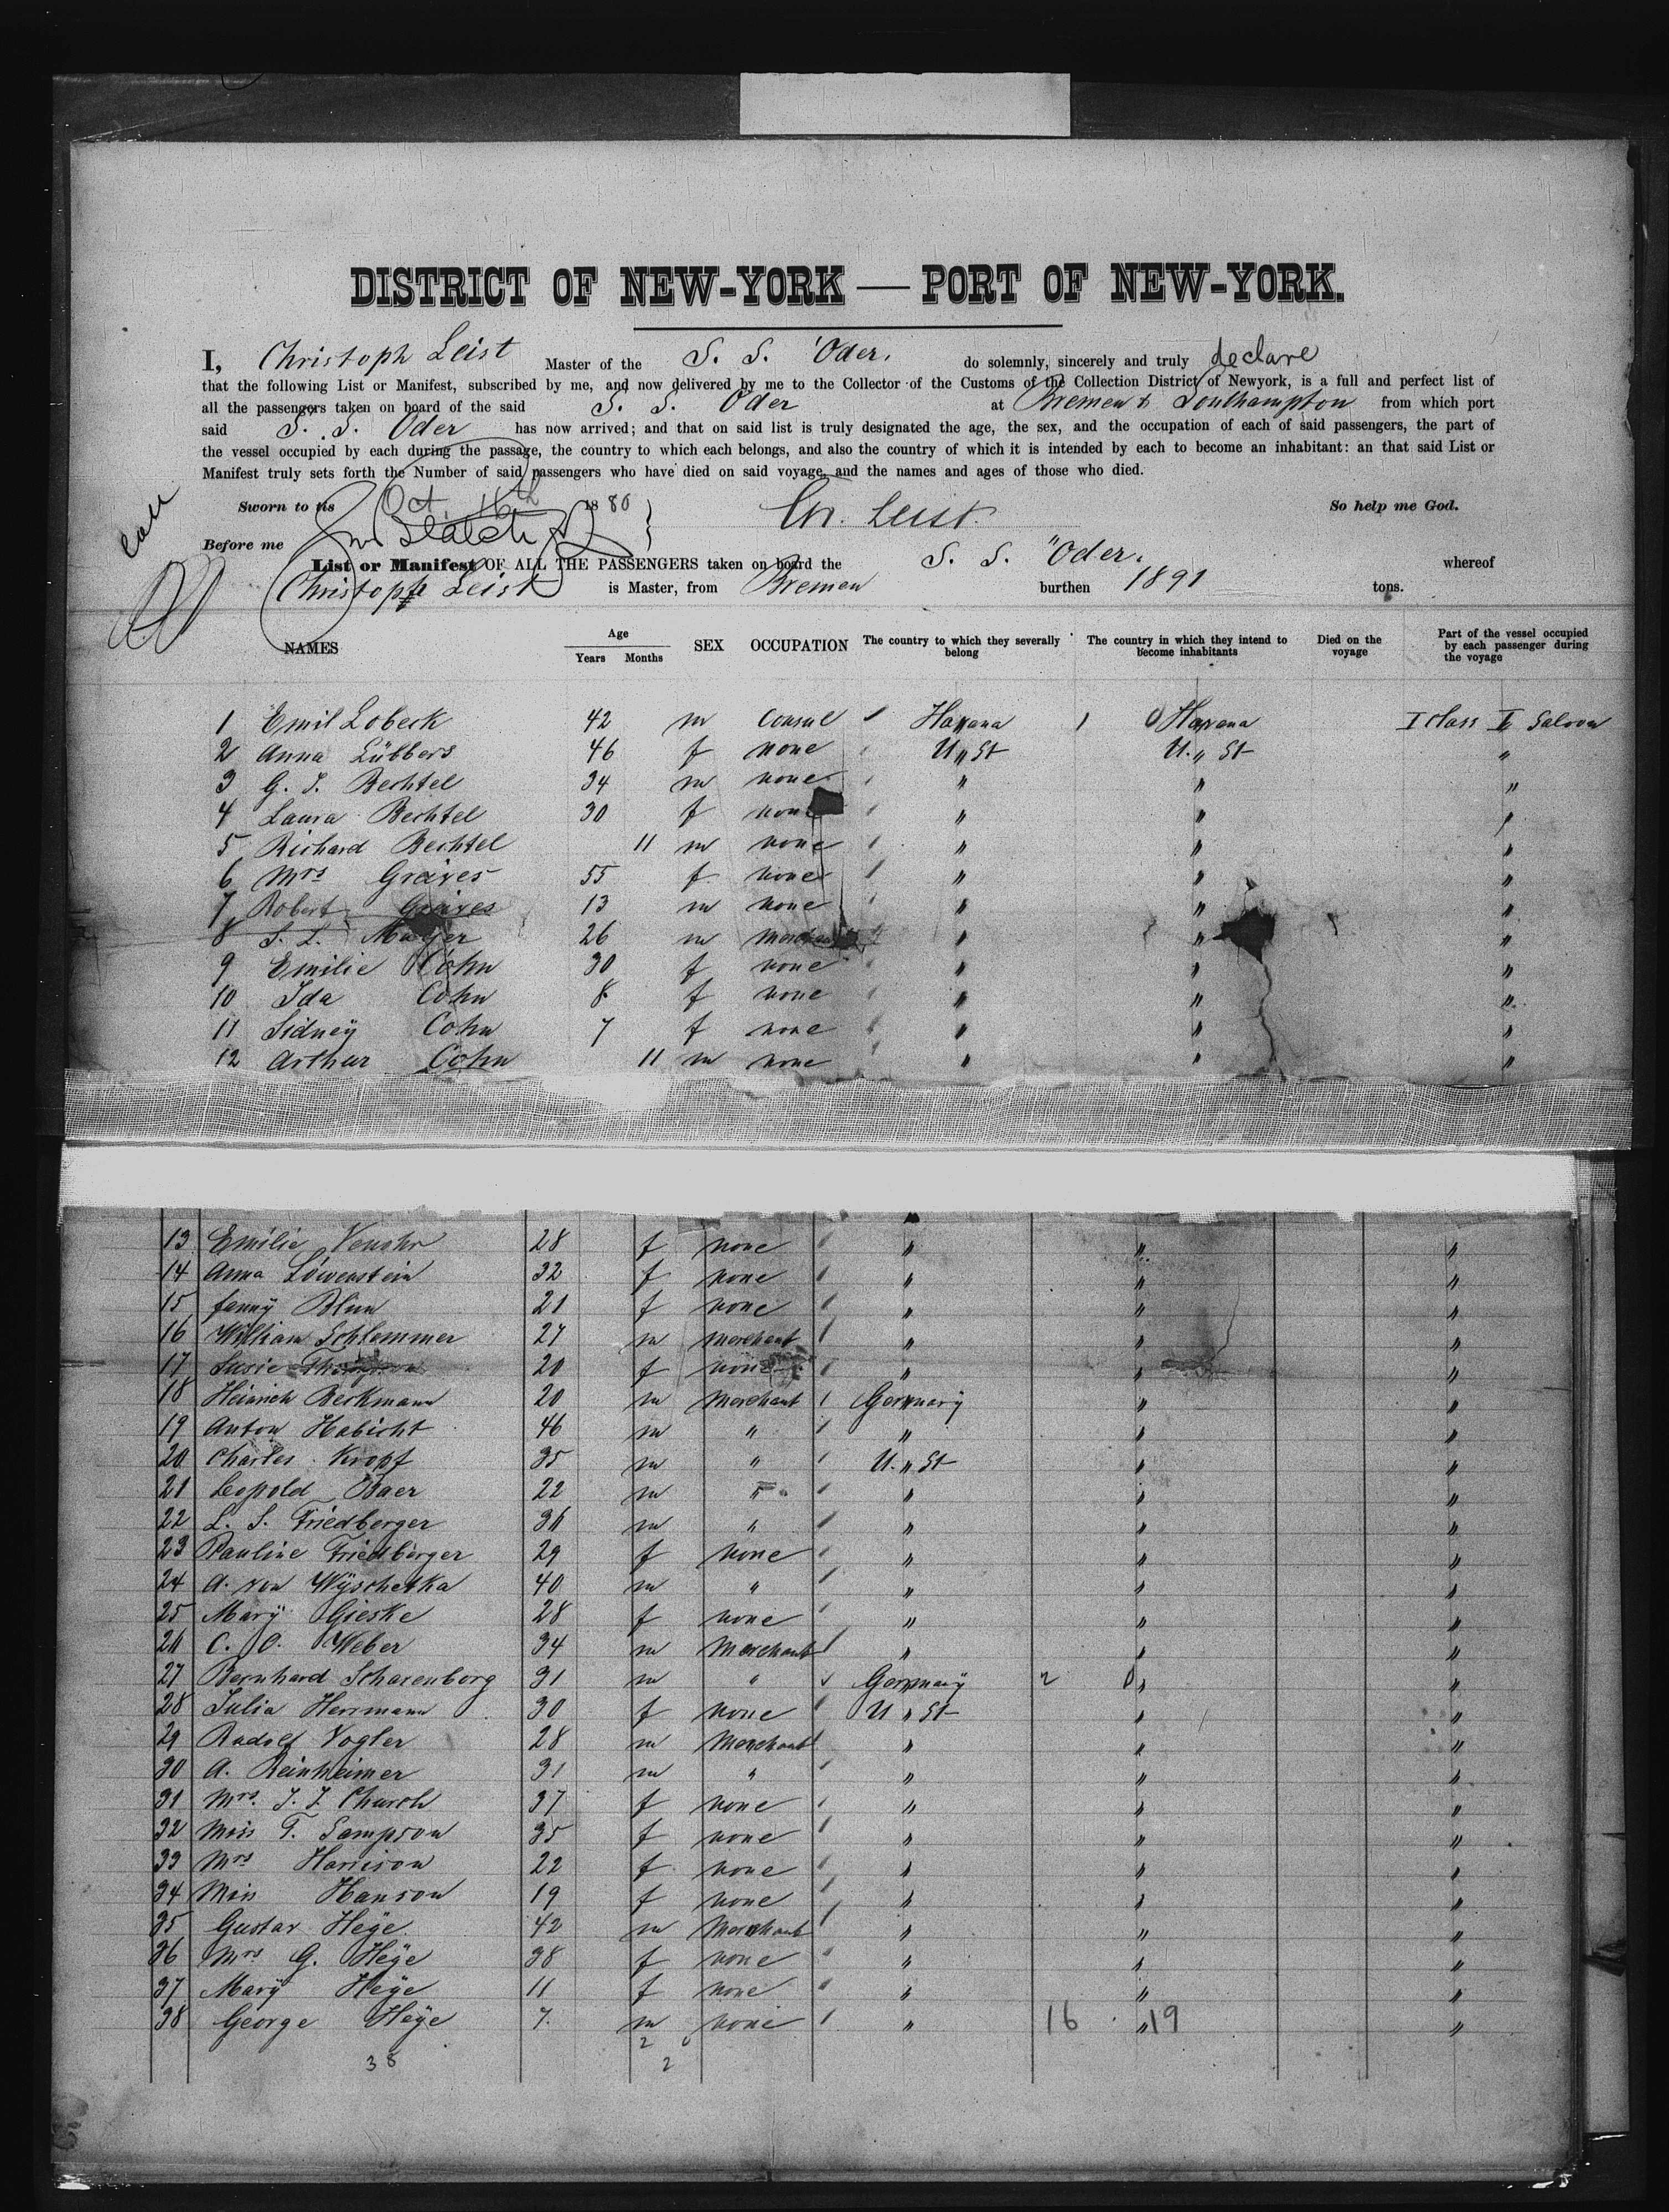 DISTRICT OF NEW-YORK — PORT OF NEW-YORK.
I, Christoph Leist Master of the S. S. "Oder. do solemnly, sincerely and truly declare
that the following List or Manifest, subscribed by me, and now delivered by me to the Collector of the Customs of the Collection District of Newyork, is a full and perfect list of
all the passengers taken on board of the said S. S. Oder at Bremen & Southampton from which port
said S. S. Oder has now arrived; and that on said list is truly designated the age, the sex, and the occupation of each of said passengers, the part of
the vessel occupied by each during the passage, the country to which each belongs, and also the country of which it is intended by each to become an inhabitant: an that said List or
Manifest truly sets forth the Number of said passengers who have died on said voyage, and the names and ages of those who died.
Sworn to tis Oct. 16th 1880 Chr. Leist. So help me God.
Before me
List or Manifest OF ALL THE PASSENGERS taken on board the S. S. "Oder. whereof
Christoph Leist is Master, from Bremen burthen 1891 tons.
NAMES Age Years Months SEX OCCUPATION The country to which they severally belong The country in which they intend to become inhabitants Died on the voyage Part of the vessel occupied by each passenger during the voyage
1 Emil Lobeck 42 m Consul Havana 1 0 Havana I class Saloon
2 Anna Lübbers 46 f none U. " St U. " St "
3 G. J. Bechtel 34 m none " " "
4 Laura Bechtel 30 f none " " "
5 Richard Bechtel 11 m none " " "
6 Mrs Graves 55 f none " " "
7 Robert Graves 13 m none " " "
8 S. L. Mayer 26 m merchant " " "
9 Emilie Cohn 30 f none " " "
10 Ida Cohn 8 f none " " "
11 Sidney Cohn 7 f none " " "
12 Arthur Cohn 11 m none " " "
13 Emilie 28 f none " " "
14 Anna Löwenstein 32 f none " " "
15 Fanny Blun 21 f none " " "
16 William Schlemmer 27 m merchant " " "
17 Susie 20 f none " " "
18 Heinrich Beckmann 20 m Merchant 1 Germany " "
19 Anton Habicht 46 m " " " "
20 Charles Kropf 35 m " U. " St " "
21 Leopold Baer 22 m " " " "
22 L. S. Friedberger 36 m " " " "
23 Pauline Friedberger 29 f none " " "
24 A. von Wyschetka 40 m " " " "
25 Mary Gieske 28 f none " " "
26 C. O. Weber 34 m Merchant " " "
27 Bernhard Scharenborg 31 m " Germany 2 0 " "
28 Julia Herrmann 30 f none U " St " "
29 Rudolf Vogler 28 m Merchant " " "
30 A. Reinheimer 31 m " " " "
31 Mrs. J. J. Church 37 f none " " "
32 Miss T. Sampson 35 f none " " "
33 Mrs Harrison 22 f none " " "
34 Miss Hanson 19 f none " " "
35 Gustav Heye 42 m Merchant " " "
36 Mrs G. Heye 38 f none " " "
37 Mary Heye 11 f none " " "
38 George Heye 7 m none " 16 " 19 "
38 2 2